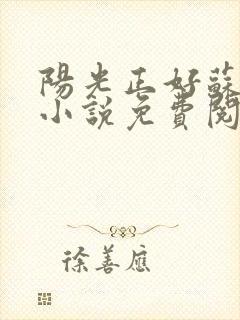 陽光正好蘇
小說免費閱
徐善應